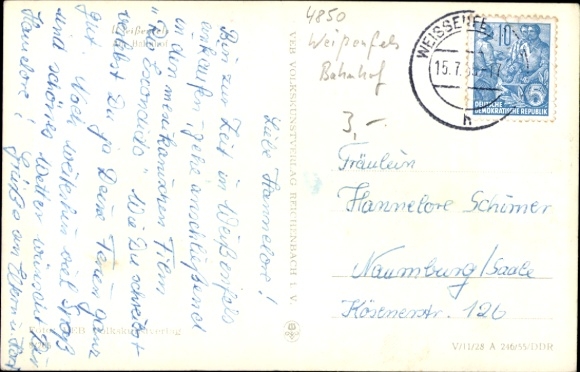 Liebe Hannelore!
Bin zur Zeit in Weißenfels
einkaufen, gehe anschließend
in den mexikanischen Film
"Rio Escondido". Wie Du schreibst
verlebst Du ja Deine Ferien ganz
gut. Noch weiterhin viel Spaß
und schönes Wetter wünscht Dir
Hannelore! Grüße an Eltern u.
Weißenfels
Bahnhof
VEB VOLKSKUNSTVERLAG REICHENBACH I. V.
4850
Weißenfels
Bahnhof
3,-
WEISSENFELS
15.7.
h
10
5
DEUTSCHE
DEMOKRATISCHE REPUBLIK
Fräulein
Hannelore Schirmer
Naumburg/Saale
Kösenerstr. 126
V/11/28 A 246/55/DDR